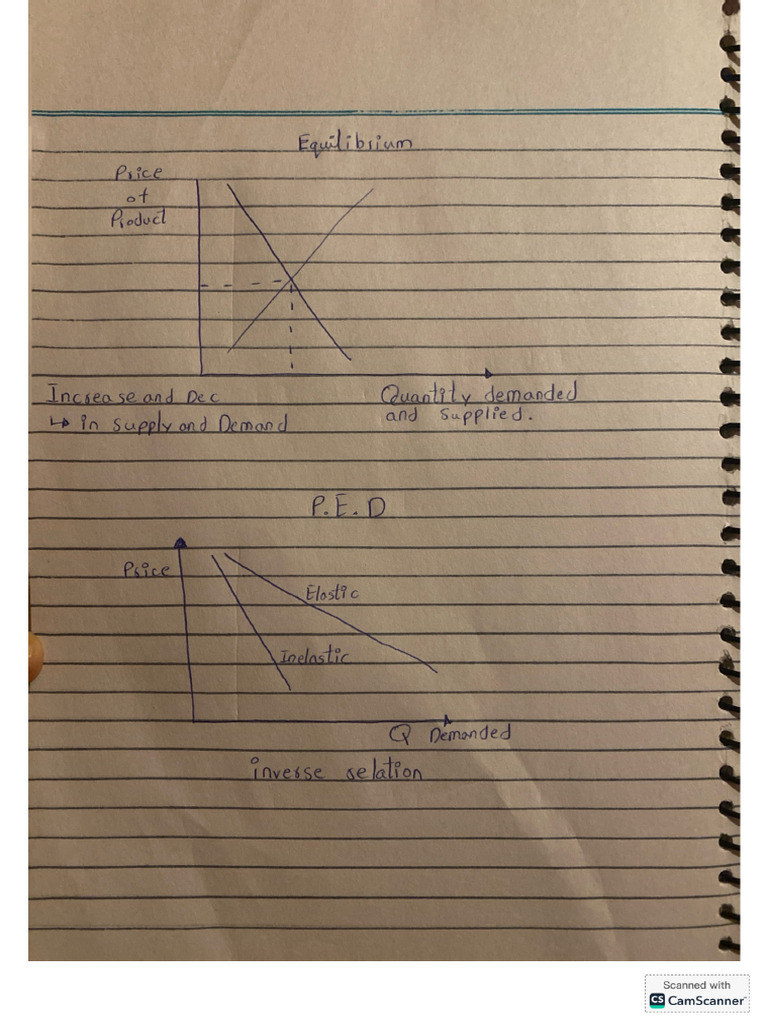 Equilibrium
Price
of
Product
Increase and Dec
↳ in supply and Demand
Quantity demanded
and supplied.
P.E.D
Price
Elastic
Inelastic
Q Demanded
inverse relation
Scanned with
CS CamScanner